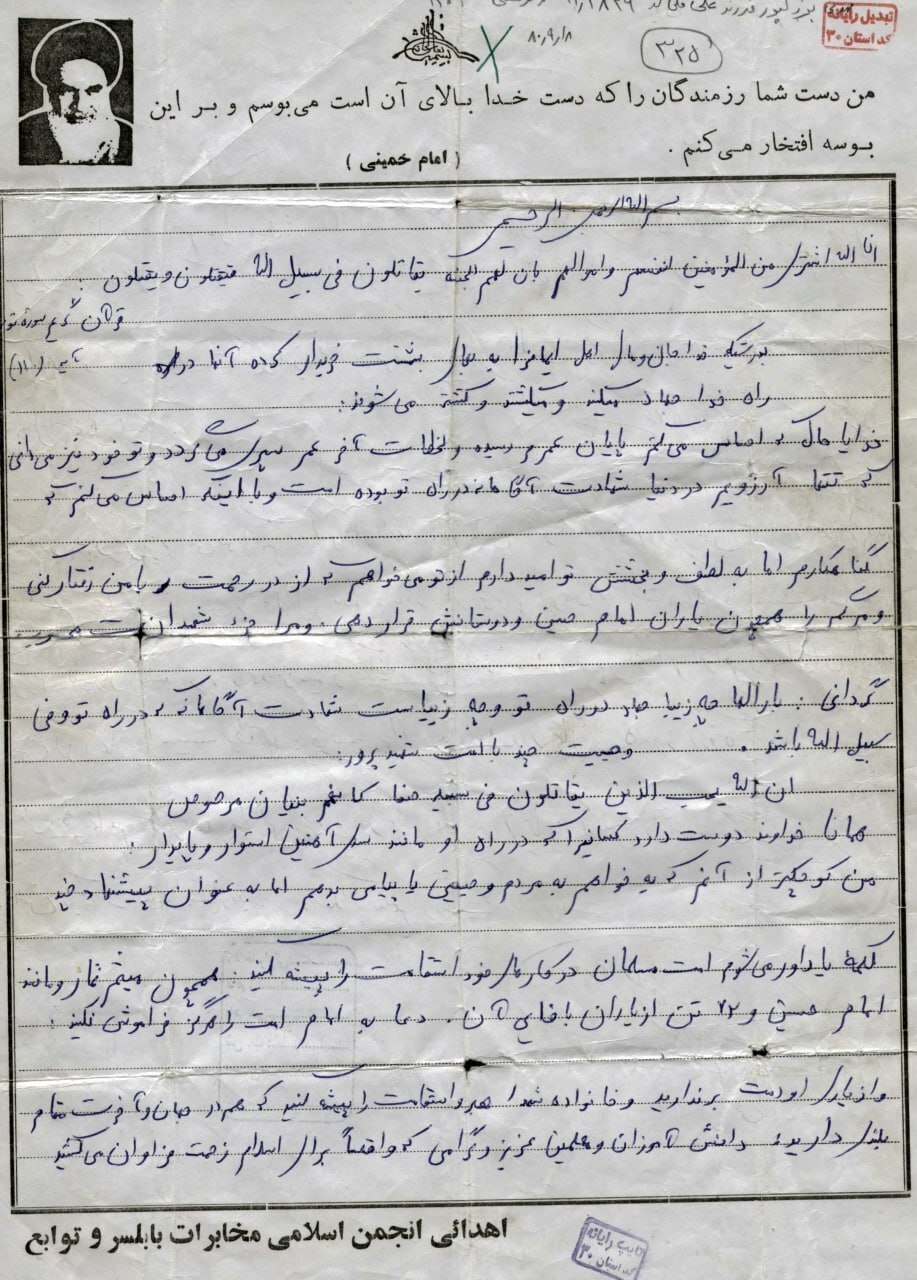 تبدیل رایانه
کد استان ۳۰
۸۰٫۹٫۸
۳۲۵
من دست شما رزمندگان را که دست خدا بالای آن است می‌بوسم و بر این
بوسه افتخار می‌کنم .
( امام خمینی )
بسم الله الرحمن الرحیم
ان الله اشتری من المؤمنین انفسهم و اموالهم بان لهم الجنه یقاتلون فی سبیل الله فیقتلون و یقتلون .
قرآن کریم سوره توبه
بدرستیکه خدا جان و مال اهل ایمانرا به بهای بهشت خریداری کرده آنها در
آیه (۱۱۱)
راه خدا جهاد میکنند و میکشند و کشته می‌شوند :
خدایا حال که احساس می‌کنم پایان عمرم رسیده و لحظات آخر عمر سپری می گردد و تو خود نیز می‌دانی
که تنها آرزویم در دنیا شهادت آگاهانه در راه تو بوده است و با اینکه احساس می‌کنم که
گناهکارم اما به لطف و بخشش تو امید دارم از تو می‌خواهم که از در رحمت با من رفتار کنی
و مرگم را همچون یاران امام حسین و دوستانش قرار دهی . و مرا جزء شهیدان
گردانی : بارالها چه زیباست جهاد در راه تو و چه زیباست شهادت آگاهانه که در راه تو و فی
سبیل الله باشد . وصیت چند با امت شهید پرور :
ان الله یحب الذین یقاتلون فی سبیله صفا کانهم بنیان مرصوص
همانا خداوند دوست دارد کسانیرا که در راه او مانند سدی آهنین استوار و پایدار :
من کوچکتر از آنم که به خواهم به مردم وصیتی یا پیامی بدهم اما به عنوان پیشنهاد چند
کلمهٔ یادآور می‌شوم امت مسلمان در کارهای خود استقامت را پیشه کنید : همچون میثم تمار و مانند
امام حسین و ۷۲ تن از یاران باوفای آن . دعا به امام امت را هرگز فراموش نکنید :
و از یاری او دست برندارید و خانواده شهدا صبر و استقامت را پیشه کنید که هم در جهان و آخرت مقام
بلندی دارید . دانش آموزان و معلمین عزیز و گرامی که واقعاً برای اسلام زحمت فراوان می‌کشید
اهدائی انجمن اسلامی مخابرات بابلسر و توابع
تایپ رایانه
کد استان ۳۰